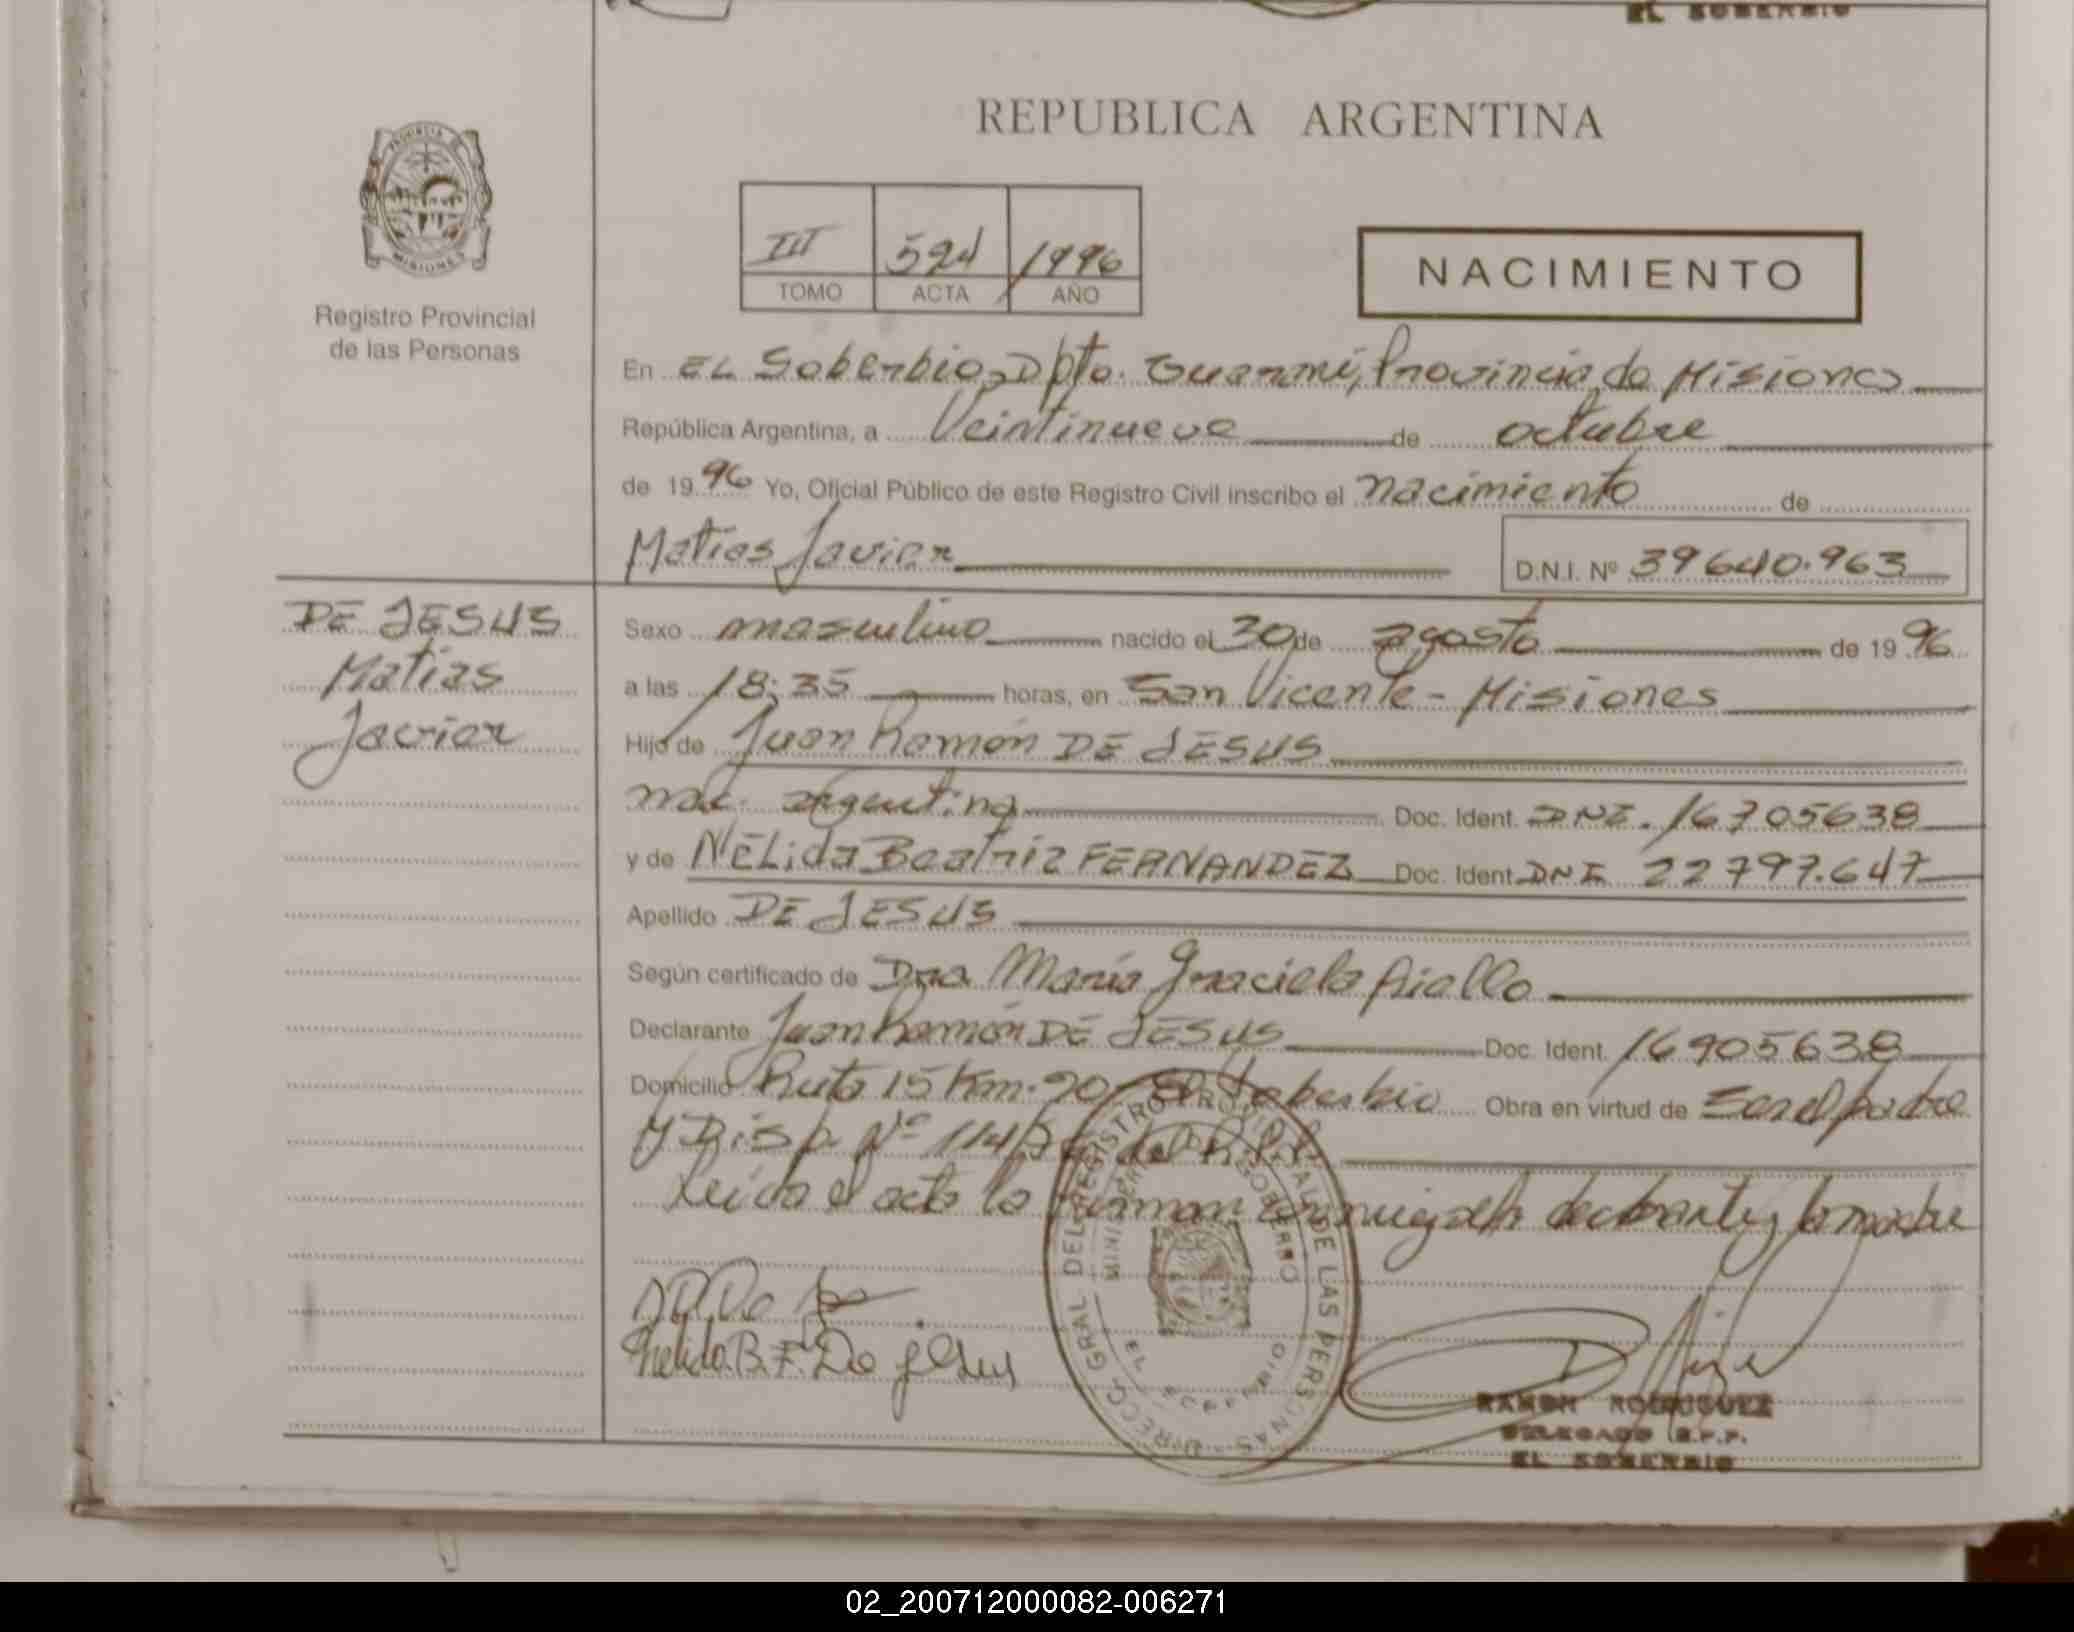 EL SOBERBIO
REPUBLICA ARGENTINA
PROVINCIA
MISIONES
Registro Provincial
de las Personas
III 594 1996
TOMO ACTA AÑO
NACIMIENTO
En EL Soberbio, Dpto. Guaraní, Provincia de Misiones
República Argentina, a Veintinueve de octubre
de 1996 Yo, Oficial Público de este Registro Civil inscribo el nacimiento de
Matias Javier D.N.I. Nº 39640.963
DE JESUS
Matias
Javier
Sexo masculino nacido el 30 de agosto de 1996
a las 18:35 horas, en San Vicente - Misiones
Hijo de Juan Ramón DE JESUS
nac. argentina Doc. Ident. DNI. 16905638
y de NÉLida Beatriz FERNANDEZ Doc. Ident. DNI 22797.647
Apellido DE JESUS
Según certificado de Dra María Graciela Aiello
Declarante Juan Ramón DE JESUS Doc. Ident. 16905638
Domicilio Ruta 15 Km. 90 - El Soberbio Obra en virtud de Ser el padre
y Disp. Nº 114/ del R.P.P.
Leida el acta la firman conmigo el declarante y la madre
DIRECC. GRAL. DEL REGISTRO PROVINCIAL DE LAS PERSONAS
EL SOBERBIO
Nelida.B.F. De Jesus
RAMON RODRIGUEZ
DELEGADO R.P.P.
EL SOBERBIO
02_200712000082-006271